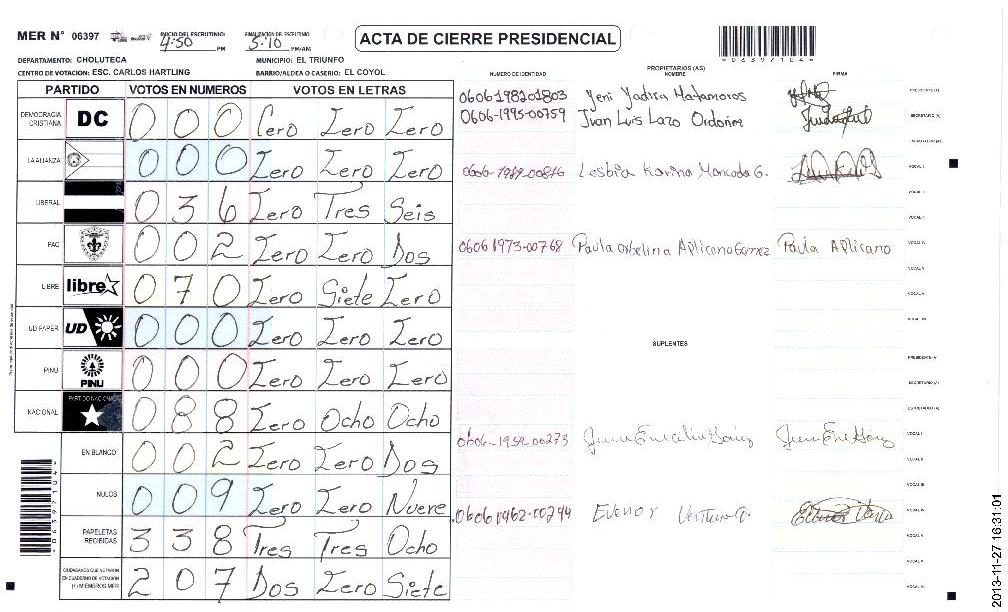 MER N° 06397
INICIO DEL ESCRUTINIO:
4:50 PM
FINALIZACION DE ESCRUTINIO
5:10 PM/AM
ACTA DE CIERRE PRESIDENCIAL
*06397104*
DEPARTAMENTO: CHOLUTECA
MUNICIPIO: EL TRIUNFO
CENTRO DE VOTACION: ESC. CARLOS HARTLING
BARRIO/ALDEA O CASERIO: EL COYOL
PARTIDO VOTOS EN NUMEROS VOTOS EN LETRAS
DEMOCRACIA CRISTIANA DC 0 0 0 Cero Zero Zero
LA ALIANZA 0 0 0 Zero Zero Zero
LIBERAL 0 3 6 Zero Tres Seis
PAC 0 0 2 Zero Zero Dos
LIBRE libre 0 7 0 Zero Siete Zero
UD FAPER UD 0 0 0 Zero Zero Zero
PINU PINU 0 0 0 Zero Zero Zero
NACIONAL PARTIDO NACIONAL 0 8 8 Zero Ocho Ocho
EN BLANCO 0 0 2 Zero Zero Dos
NULOS 0 0 9 Zero Zero Nueve
PAPELETAS RECIBIDAS 3 3 8 Tres Tres Ocho
CIUDADANOS QUE VOTARON EN CUADERNO DE VOTACION (+) MIEMBROS MER 2 0 7 Dos Zero Siete
PROPIETARIOS (AS)
NUMERO DE IDENTIDAD NOMBRE FIRMA
0606198201803 Yeni Yadira Matamoros PRESIDENTE (A)
0606-1995-00759 Juan Luis Lazo Ordoñez SECRETARIO (A)
ESCRUTADOR (A)
0606-1989-00816 Lesbia Karina Moncada G. VOCAL I
VOCAL II
VOCAL III
0606 1973-00768 Paula Aplicano VOCAL IV
VOCAL V
VOCAL VI
VOCAL VII
VOCAL VIII
SUPLENTES
PRESIDENTE (A)
SECRETARIO (A)
ESCRUTADOR (A)
0606-1959-00273 VOCAL I
VOCAL II
VOCAL III
0606 1962-00244 Evenor Ventura VOCAL IV
VOCAL V
VOCAL VI
VOCAL VII
VOCAL VIII
*06397104*
2013-11-27 16:31:01